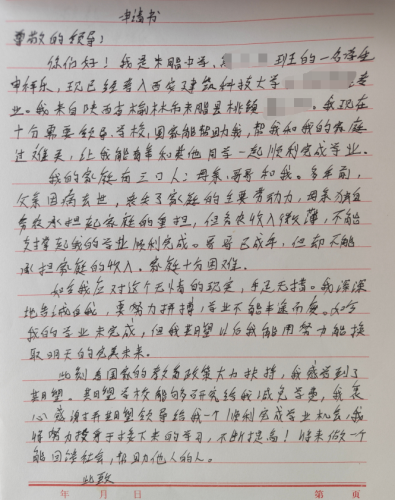 申请书
尊敬的领导:
你们好!我是米脂中学, 班的一名学生
申梓乐,现已经考入西安建筑科技大学 专
业。我来自陕西省榆林市米脂县桃镇 。我现在
十分需要领导,学校,国家能帮助我,帮我和我的家庭
过难关,让我能有幸和其他同学一起顺利完成学业。
我的家庭有三口人:母亲,哥哥和我。多年前,
父亲因病去世,丧失了家庭的主要劳动力,母亲独自
务农承担起家庭的重担,但务农收入微薄,不能
支撑起我的学业顺利完成。哥哥已成年,但却不能
承担家庭的收入。家庭十分困难。
如今我应对这个无情的现实,手足无措。我深深
地告诫自我,要努力拼搏,学业不能半途而废。如今
我的学业未完成,但我期望以后我能用努力能换
取明天的完美未来。
此刻有国家的教育政策大力扶持,我感受到了
期望。期望学校能够研究给我减免学费,我衷
心感谢并期望领导给我一个顺利完成学业机会,我
将努力投身于接下来的学习,不断提高!将来做一个
能回馈社会,帮助他人的人。
此致
年 月 日 第 页